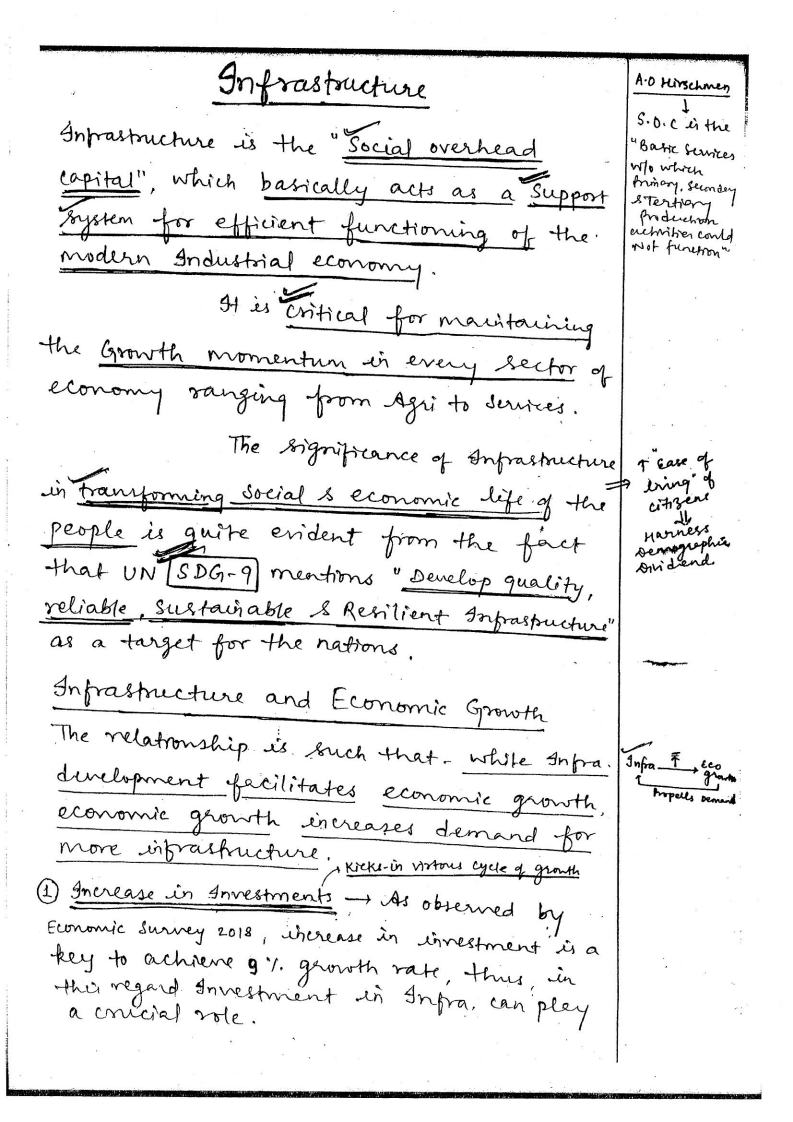 Infrastructure
Infrastructure is the "Social overhead
capital", which basically acts as a support
system for efficient functioning of the
modern Industrial economy.
It is critical for maintaining
the Growth momentum in every sector of
economy ranging from Agri to services.
The significance of Infrastructure
in transforming social & economic life of the
people is quite evident from the fact
that UN SDG-9 mentions "Develop quality,
reliable, sustainable & Resilient Infrastructure"
as a target for the nations.
Infrastructure and Economic Growth
The relationship is such that - while Infra.
development facilitates economic growth,
economic growth increases demand for
more infrastructure.
→ Kicks-in virtous cycle of growth
① Increase in Investments → As observed by
Economic Survey 2018, increase in investment is a
key to achieve 9% growth rate, thus, in
this regard Investment in Infra. can play
a crucial role.
A.O Hirschmen
↓
S.O.C is the
"Basic Services
w/o which
Primary, Secondey
& Tertiary
Production
activities could
Not function"
⇒ ↑ "Ease of
living" of
citizens
⇓
Harness
Demographic
Dividend
Infra ↑ → Eco
growth
Propells Demand